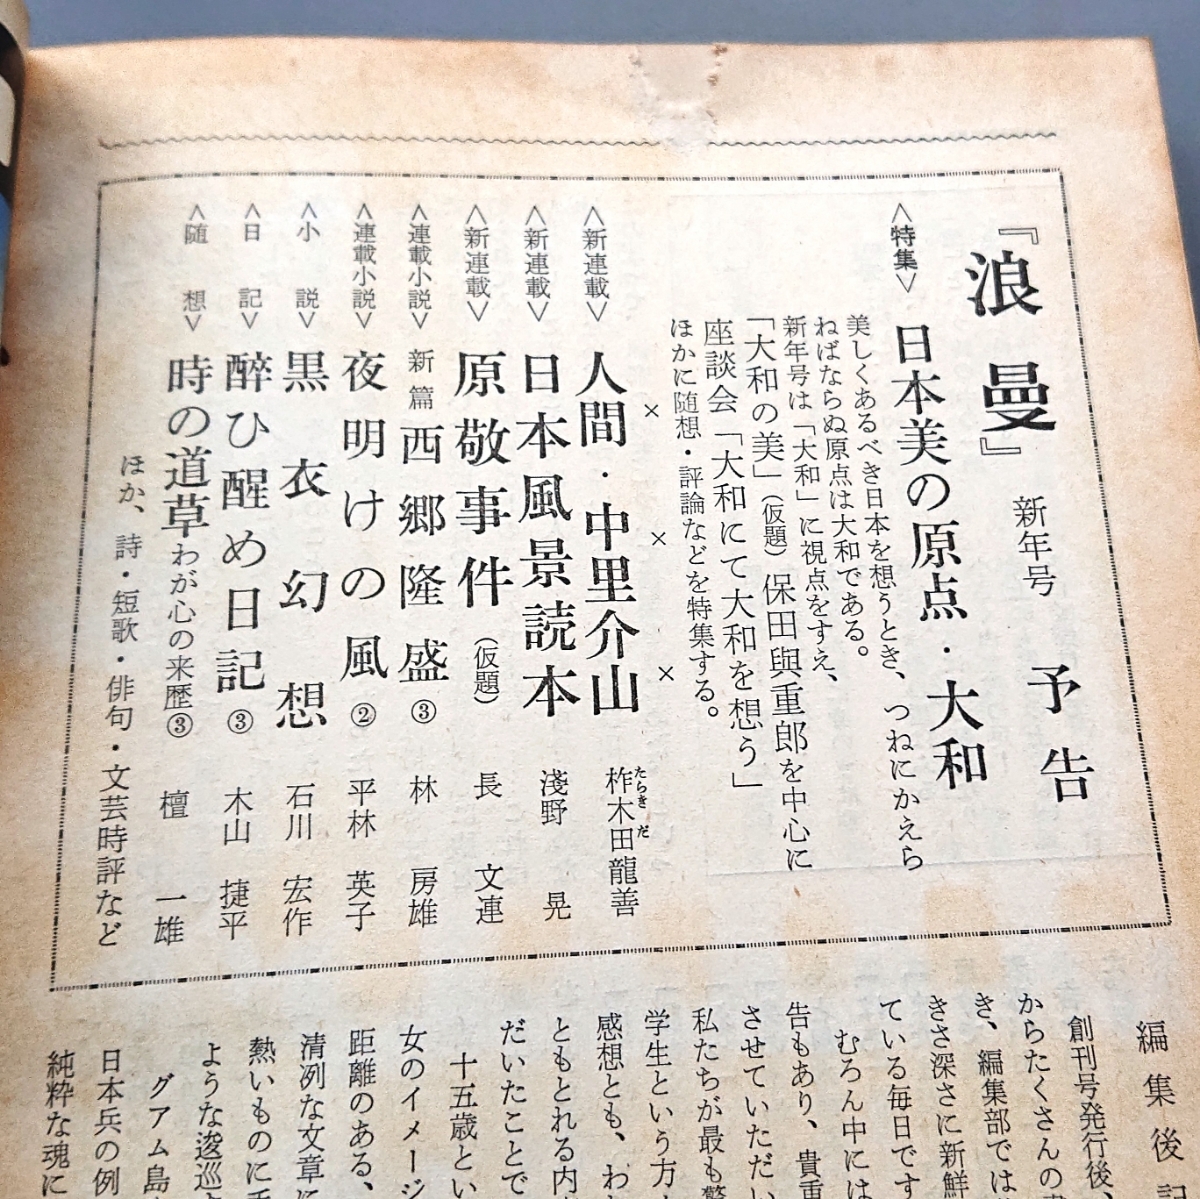 『浪曼』 新年号 予告
<特集> 日本美の原点・大和
美しくあるべき日本を想うとき、つねにかえら
ねばならぬ原点は大和である。
新年号は「大和」に視点をすえ、
「大和の美」(仮題) 保田與重郎を中心に
座談会「大和にて大和を想う」
ほかに随想・評論などを特集する。
× × ×
<新連載> 人間・中里介山 柞木田龍善
たらきだ
<新連載> 日本風景読本 淺野 晃
<新連載> 原敬事件(仮題) 長 文連
<連載小説> 新篇 西郷隆盛③ 林 房雄
<連載小説> 夜明けの風② 平林 英子
<小説> 黒衣幻想 石川 宏作
<日記> 醉ひ醒め日記③ 木山 捷平
<随想> 時の道草 わが心の来歴③ 檀 一雄
ほか、詩・短歌・俳句・文芸時評など
編集後記
創刊号発行後
からたくさんの
き、編集部では
きさ深さに新鮮
ている毎日です
むろん中には
告もあり、貴重
させていただい
私たちが最も驚
学生という方
感想とも、わ
ともとれる内
だいたことで
十五歳とい
女のイメージ
距離のある、
清冽な文章に
熱いものに
ような逡巡
グアム島
日本兵の例
純粋な魂に